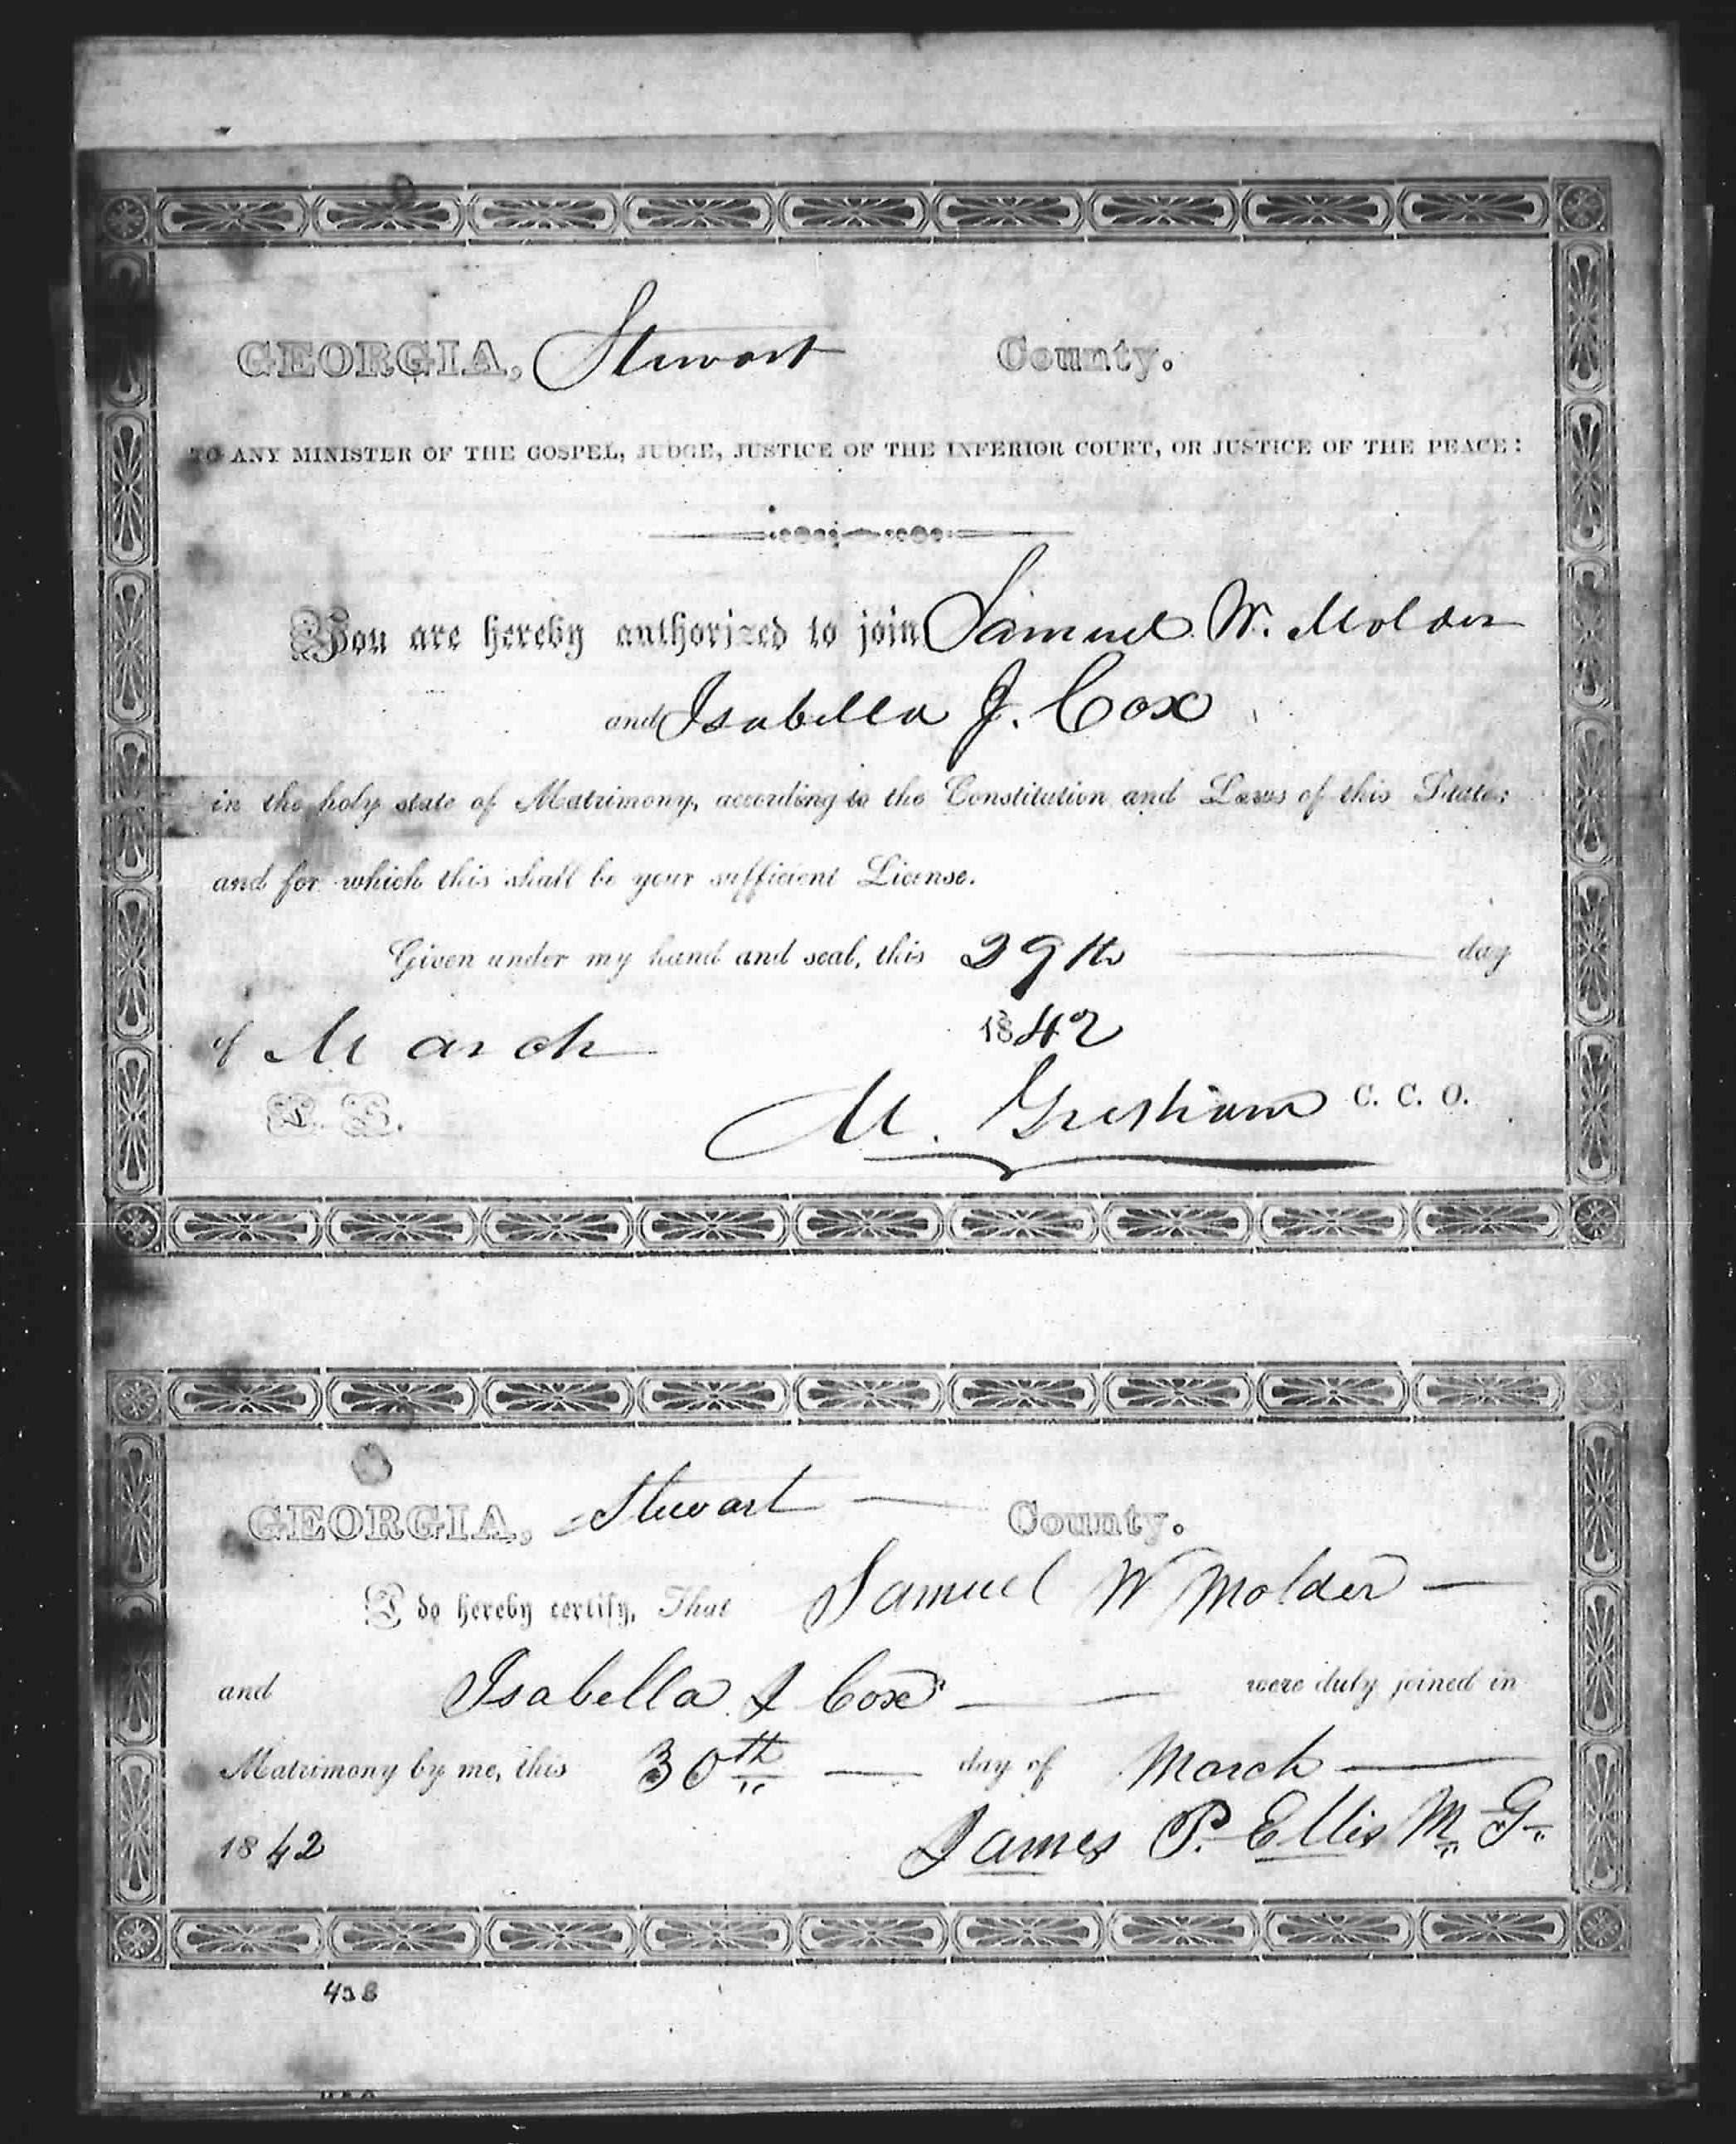 GEORGIA, Stewart County.
TO ANY MINISTER OF THE GOSPEL, JUDGE, JUSTICE OF THE INFERIOR COURT, OR JUSTICE OF THE PEACE:
You are hereby authorized to join Samuel W. Molder
and Isabella J. Cox
in the holy state of Matrimony, according to the Constitution and Laws of this State;
and for which this shall be your sufficient License.
Given under my hand and seal, this 29th day
of March 1842
L. S. M. Gresham C. C. O.
GEORGIA, Stewart County.
I do hereby certify, That Samuel W Molder
and Isabella J Cox were duly joined in
Matrimony by me, this 30th day of March
1842 James P. Ellis M. G.